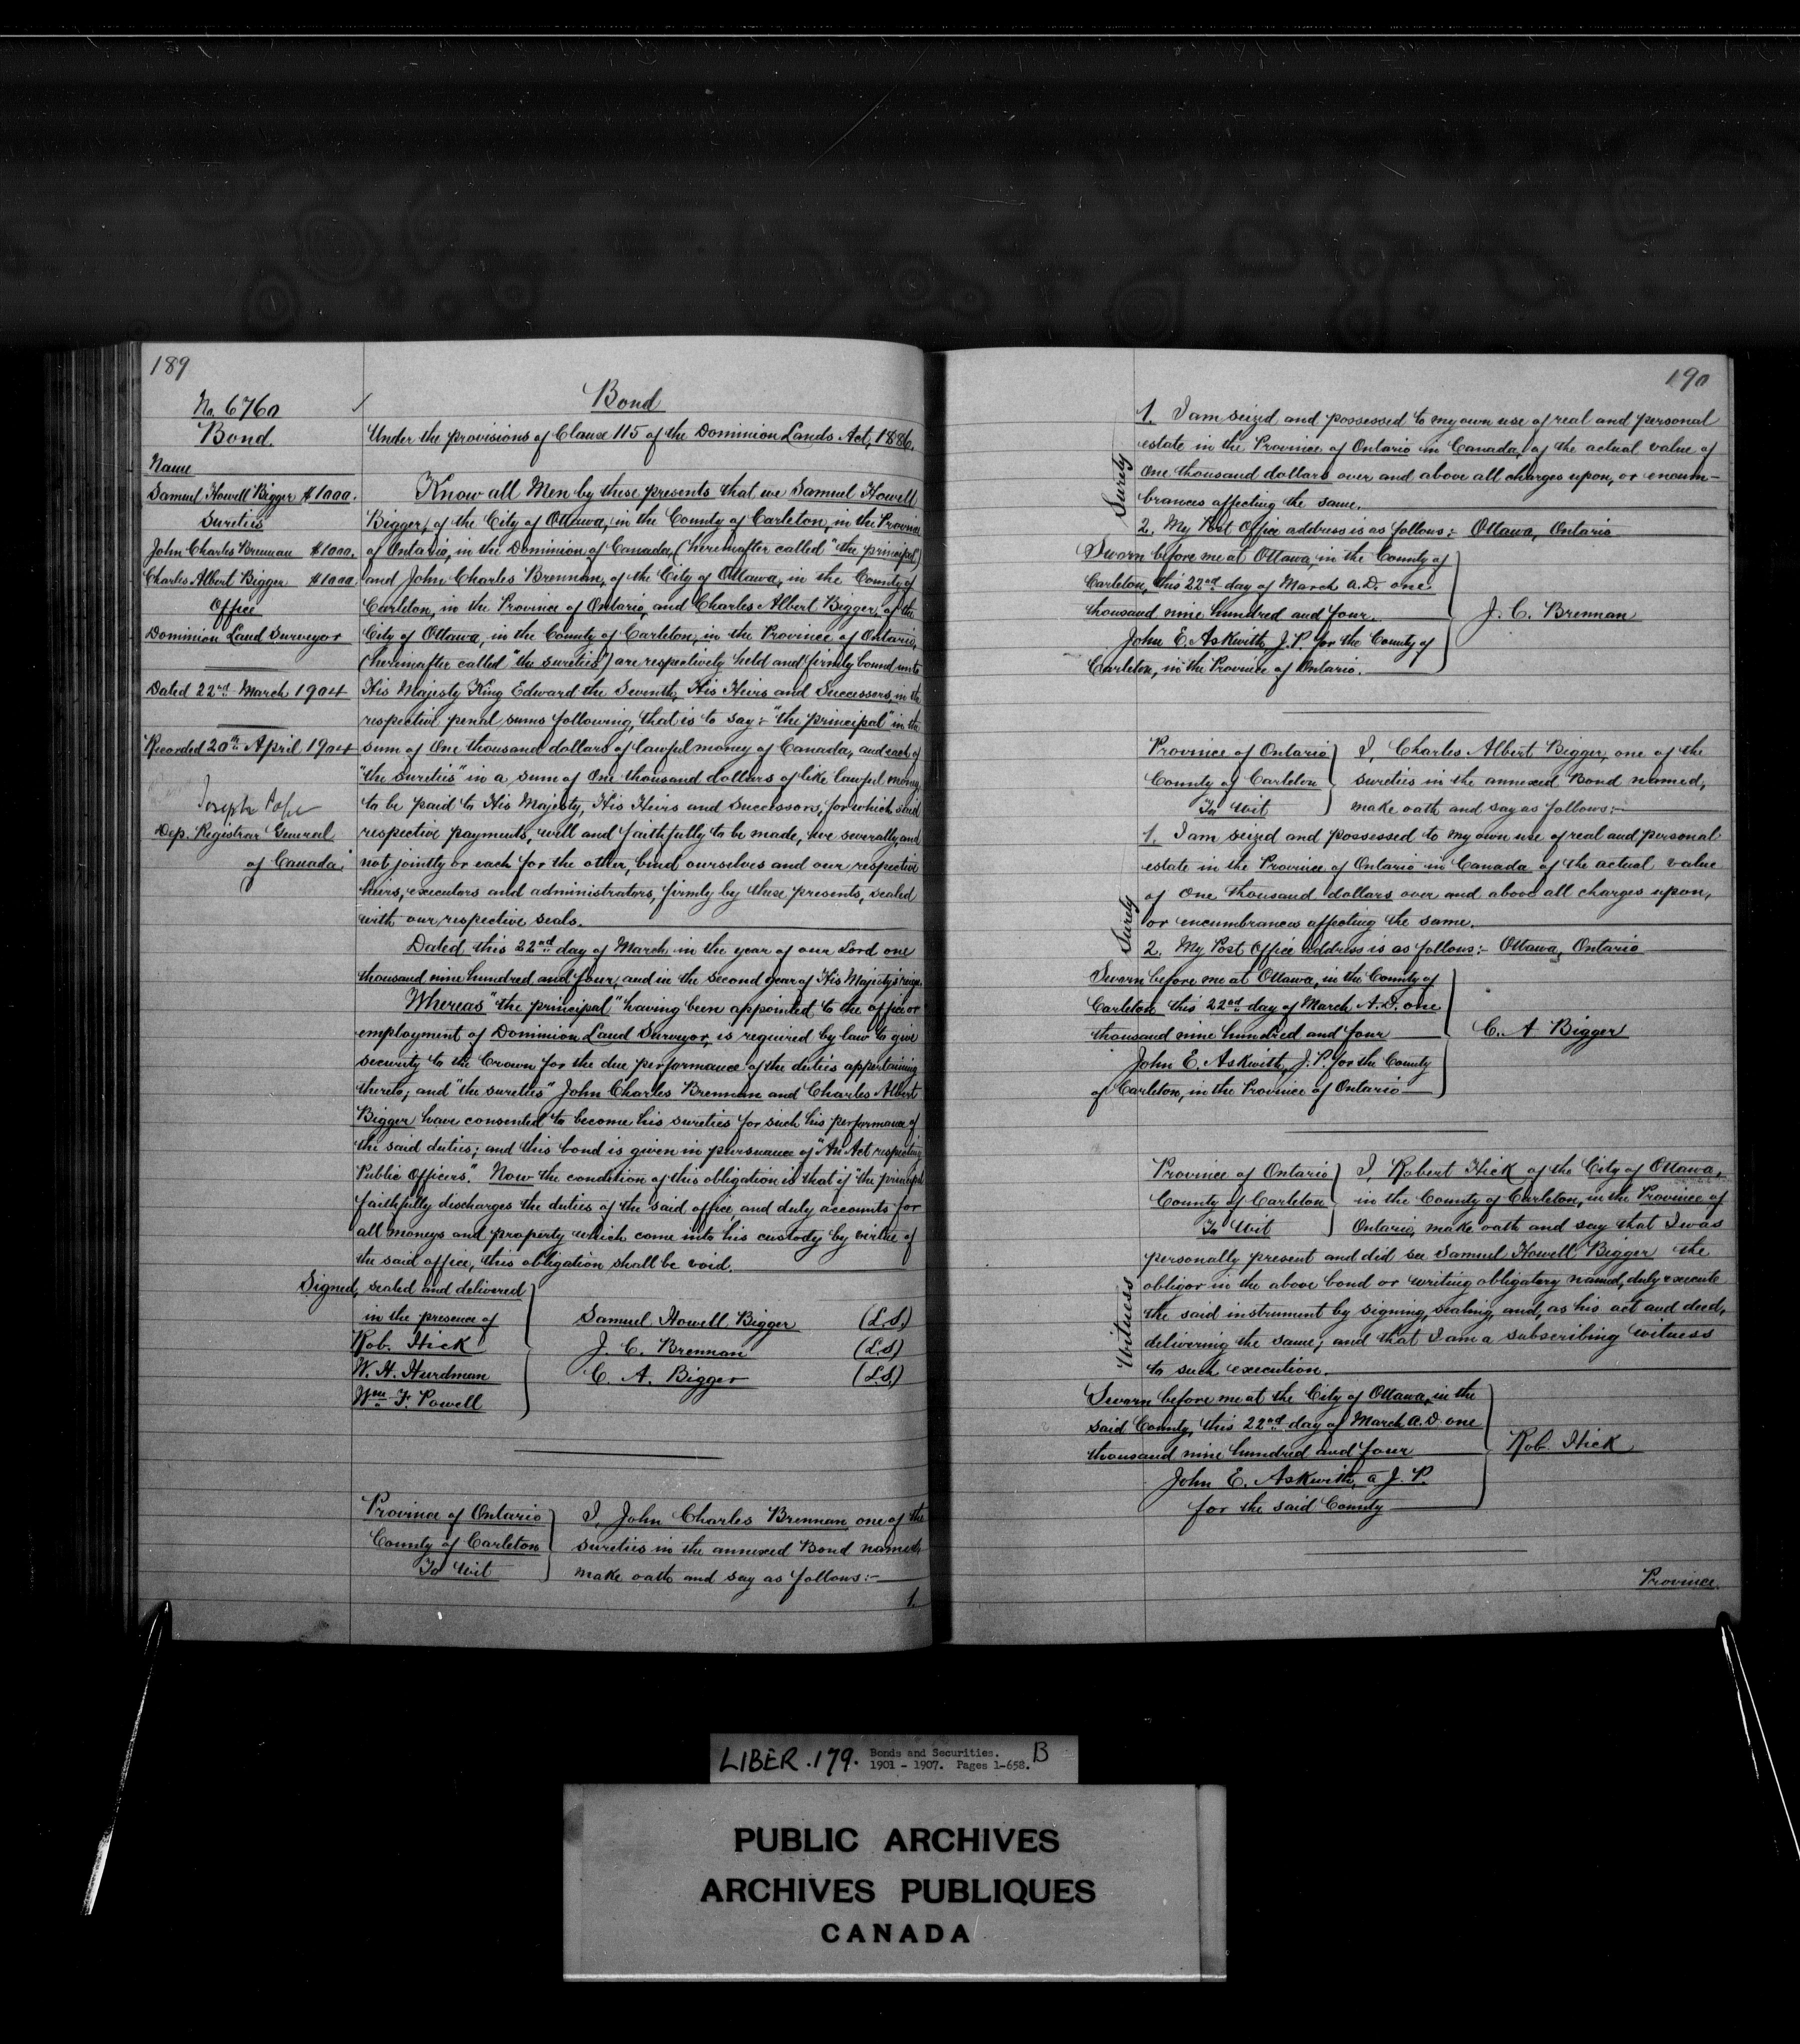 189
No. 6760
Bond.
Name
Samuel Howell Bigger $1000.
Sureties
John Charles Brennan $1000.
Charles Albert Bigger $1000.
Office
Dominion Land Surveyor
Dated 22nd March 1904
Recorded 20th April 1904
Joseph Pope
Dep. Registrar General
of Canada.
Bond
Under the provisions of Clause 115 of the Dominion Lands Act, 1886.
Know all Men by these presents that we Samuel Howell
Bigger, of the City of Ottawa, in the County of Carleton, in the Province
of Ontario, in the Dominion of Canada, (hereinafter called "the principal")
and John Charles Brennan, of the City of Ottawa, in the County of
Carleton, in the Province of Ontario, and Charles Albert Bigger, of the
City of Ottawa, in the County of Carleton, in the Province of Ontario,
(hereinafter called "the sureties") are respectively held and firmly bound unto
His Majesty King Edward the Seventh, His Heirs and Successors, in the
respective penal sums following, that is to say:- "the principal" in the
sum of One thousand dollars of lawful money of Canada, and each of
"the sureties" in a sum of One thousand dollars of like lawful money,
to be paid to His Majesty, His Heirs and Successors, for which said
respective payments, well and faithfully to be made, we severally, and
not jointly or each for the other, bind ourselves and our respective
heirs, executors and administrators, firmly by these presents, sealed
with our respective seals.
Dated this 22nd day of March in the year of our Lord one
thousand nine hundred and four, and in the second year of His Majesty's reign.
Whereas "the principal" having been appointed to the office or
employment of Dominion Land Surveyor, is required by law to give
security to the Crown for the due performance of the duties appertaining
thereto; and "the sureties" John Charles Brennan and Charles Albert
Bigger have consented to become his sureties for such his performance of
the said duties; and this bond is given in pursuance of "An Act respecting
Public Officers." Now the condition of this obligation is that if "the principal"
faithfully discharges the duties of the said office and duly accounts for
all moneys and property which come into his custody by virtue of
the said office, this obligation shall be void.
Signed, sealed and delivered
in the presence of
Rob. Hick
W. H. Hurdman
Wm. F. Powell
Samuel Howell Bigger (L.S.)
J. C. Brennan (L.S)
C. A. Bigger (L.S)
Province of Ontario
County of Carleton
To Wit
I, John Charles Brennan one of the
sureties in the annexed Bond named,
make oath and say as follows:-
1.
190
Surety
1. I am seized and possessed to my own use of real and personal
estate in the Province of Ontario in Canada, of the actual value of
One thousand dollars over and above all charges upon, or encum-
brances affecting the same.
2. My Post Office address is as follows:- Ottawa, Ontario
Sworn before me at Ottawa, in the County of
Carleton, this 22nd day of March A.D. one
thousand nine hundred and four.
John E. Askwith, J.P. for the County of
Carleton, in the Province of Ontario.
J. C. Brennan
Province of Ontario
County of Carleton
To Wit
I, Charles Albert Bigger, one of the
sureties in the annexed Bond named,
make oath and say as follows:-
Surety
1. I am seized and possessed to my own use of real and personal
estate in the Province of Ontario in Canada of the actual value
of One thousand dollars over and above all charges upon,
or encumbrances affecting the same.
2. My Post Office Address is as follows:- Ottawa, Ontario
Sworn before me at Ottawa, in the County of
Carleton this 22nd day of March A.D. one
thousand nine hundred and four
John E. Askwith, J.P. for the County
of Carleton, in the Province of Ontario
C. A Bigger
Province of Ontario
County of Carleton
To Wit
I, Robert Hick of the City of Ottawa,
in the County of Carleton, in the Province of
Ontario, make oath and say that I was
Witness
personally present and did see Samuel Howell Bigger the
obligor in the above bond or writing obligatory named, duly execute
the said instrument by signing, sealing, and, as his act and deed,
delivering the same; and that I am a subscribing witness
to such execution.
Sworn before me at the City of Ottawa, in the
said County, this 22nd day of March A.D. one
thousand nine hundred and four
John E. Askwith, a J. P.
for the said County
Rob. Hick
Province
LIBER.179. Bonds and Securities. B
1901 - 1907. Pages 1-658.
PUBLIC ARCHIVES
ARCHIVES PUBLIQUES
CANADA